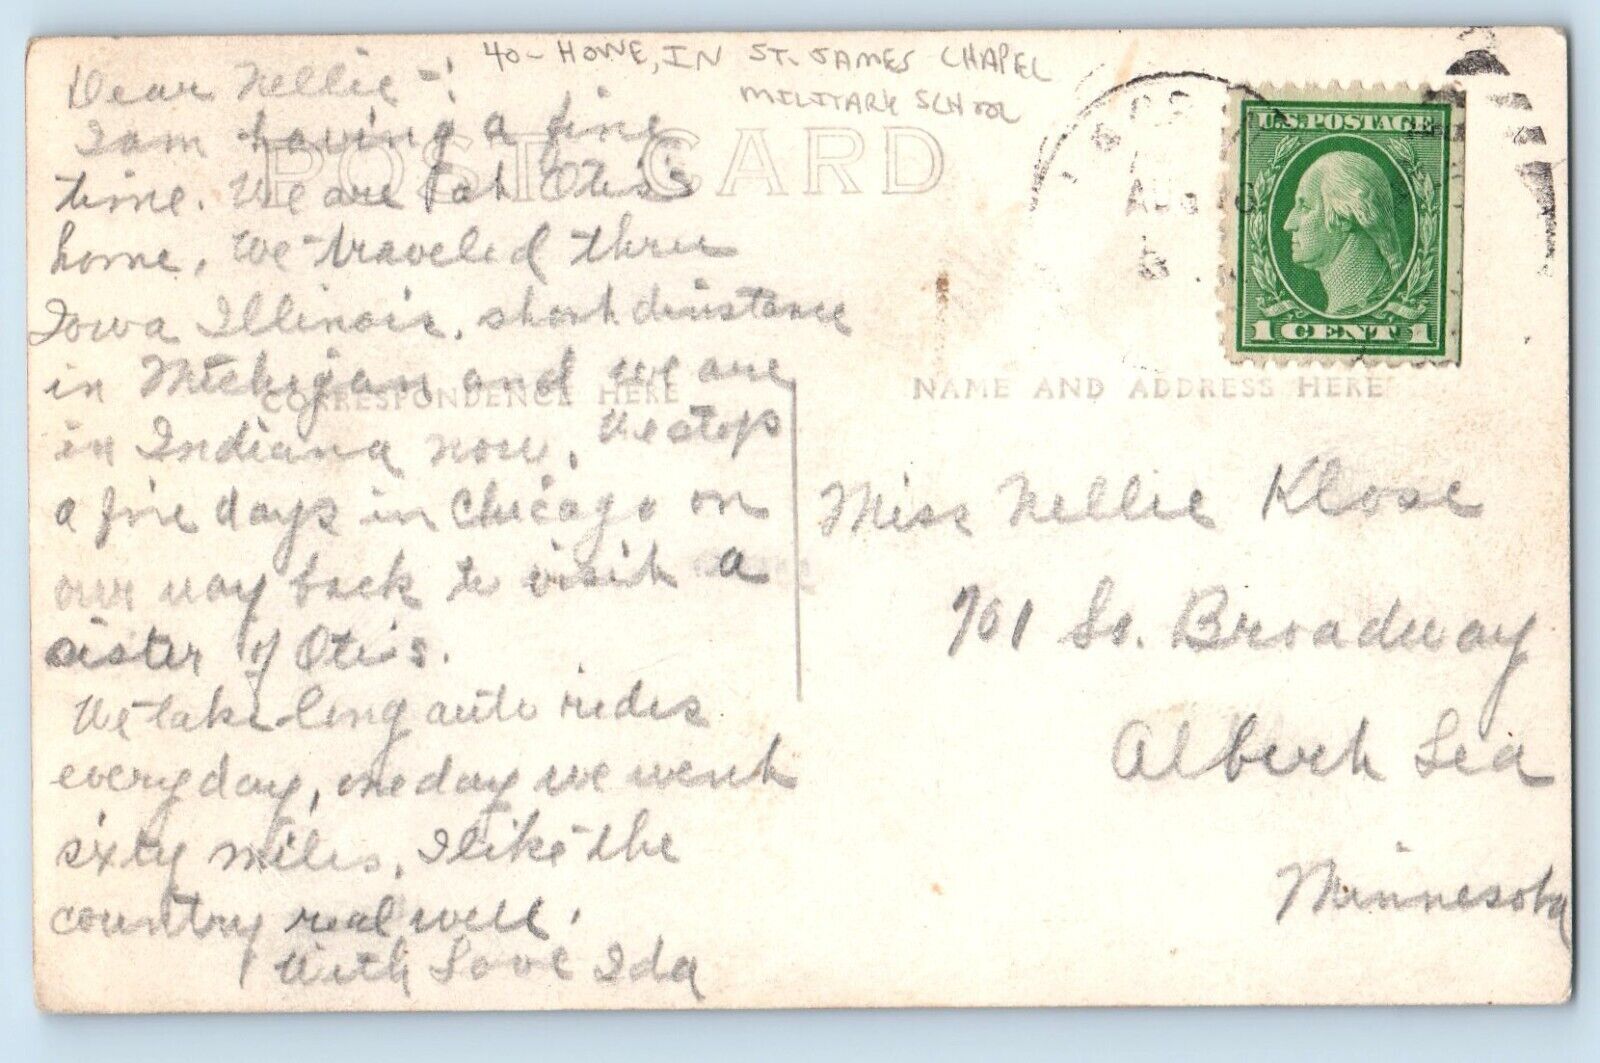 40 - HOWE, IN ST. JAMES CHAPEL
MILITARY SCHOOL
POST CARD
CORRESPONDENCE HERE
NAME AND ADDRESS HERE
U.S. POSTAGE
1 CENT 1
AUG
Dear Nellie -!
I am having a fine
time. We are at Otis's
home. We traveled thru
Iowa Illinois, short dinstance
in Michigan and we are
in Indiana now. We stop
a five days in Chicago on
our way back to visit a
sister of Otis.
We take long auto rides
everyday, one day we went
sixty miles. I like the
country real well.
With Love Ida
Miss Nellie Klose
701 So. Broadway
Albert Lea
Minnesota